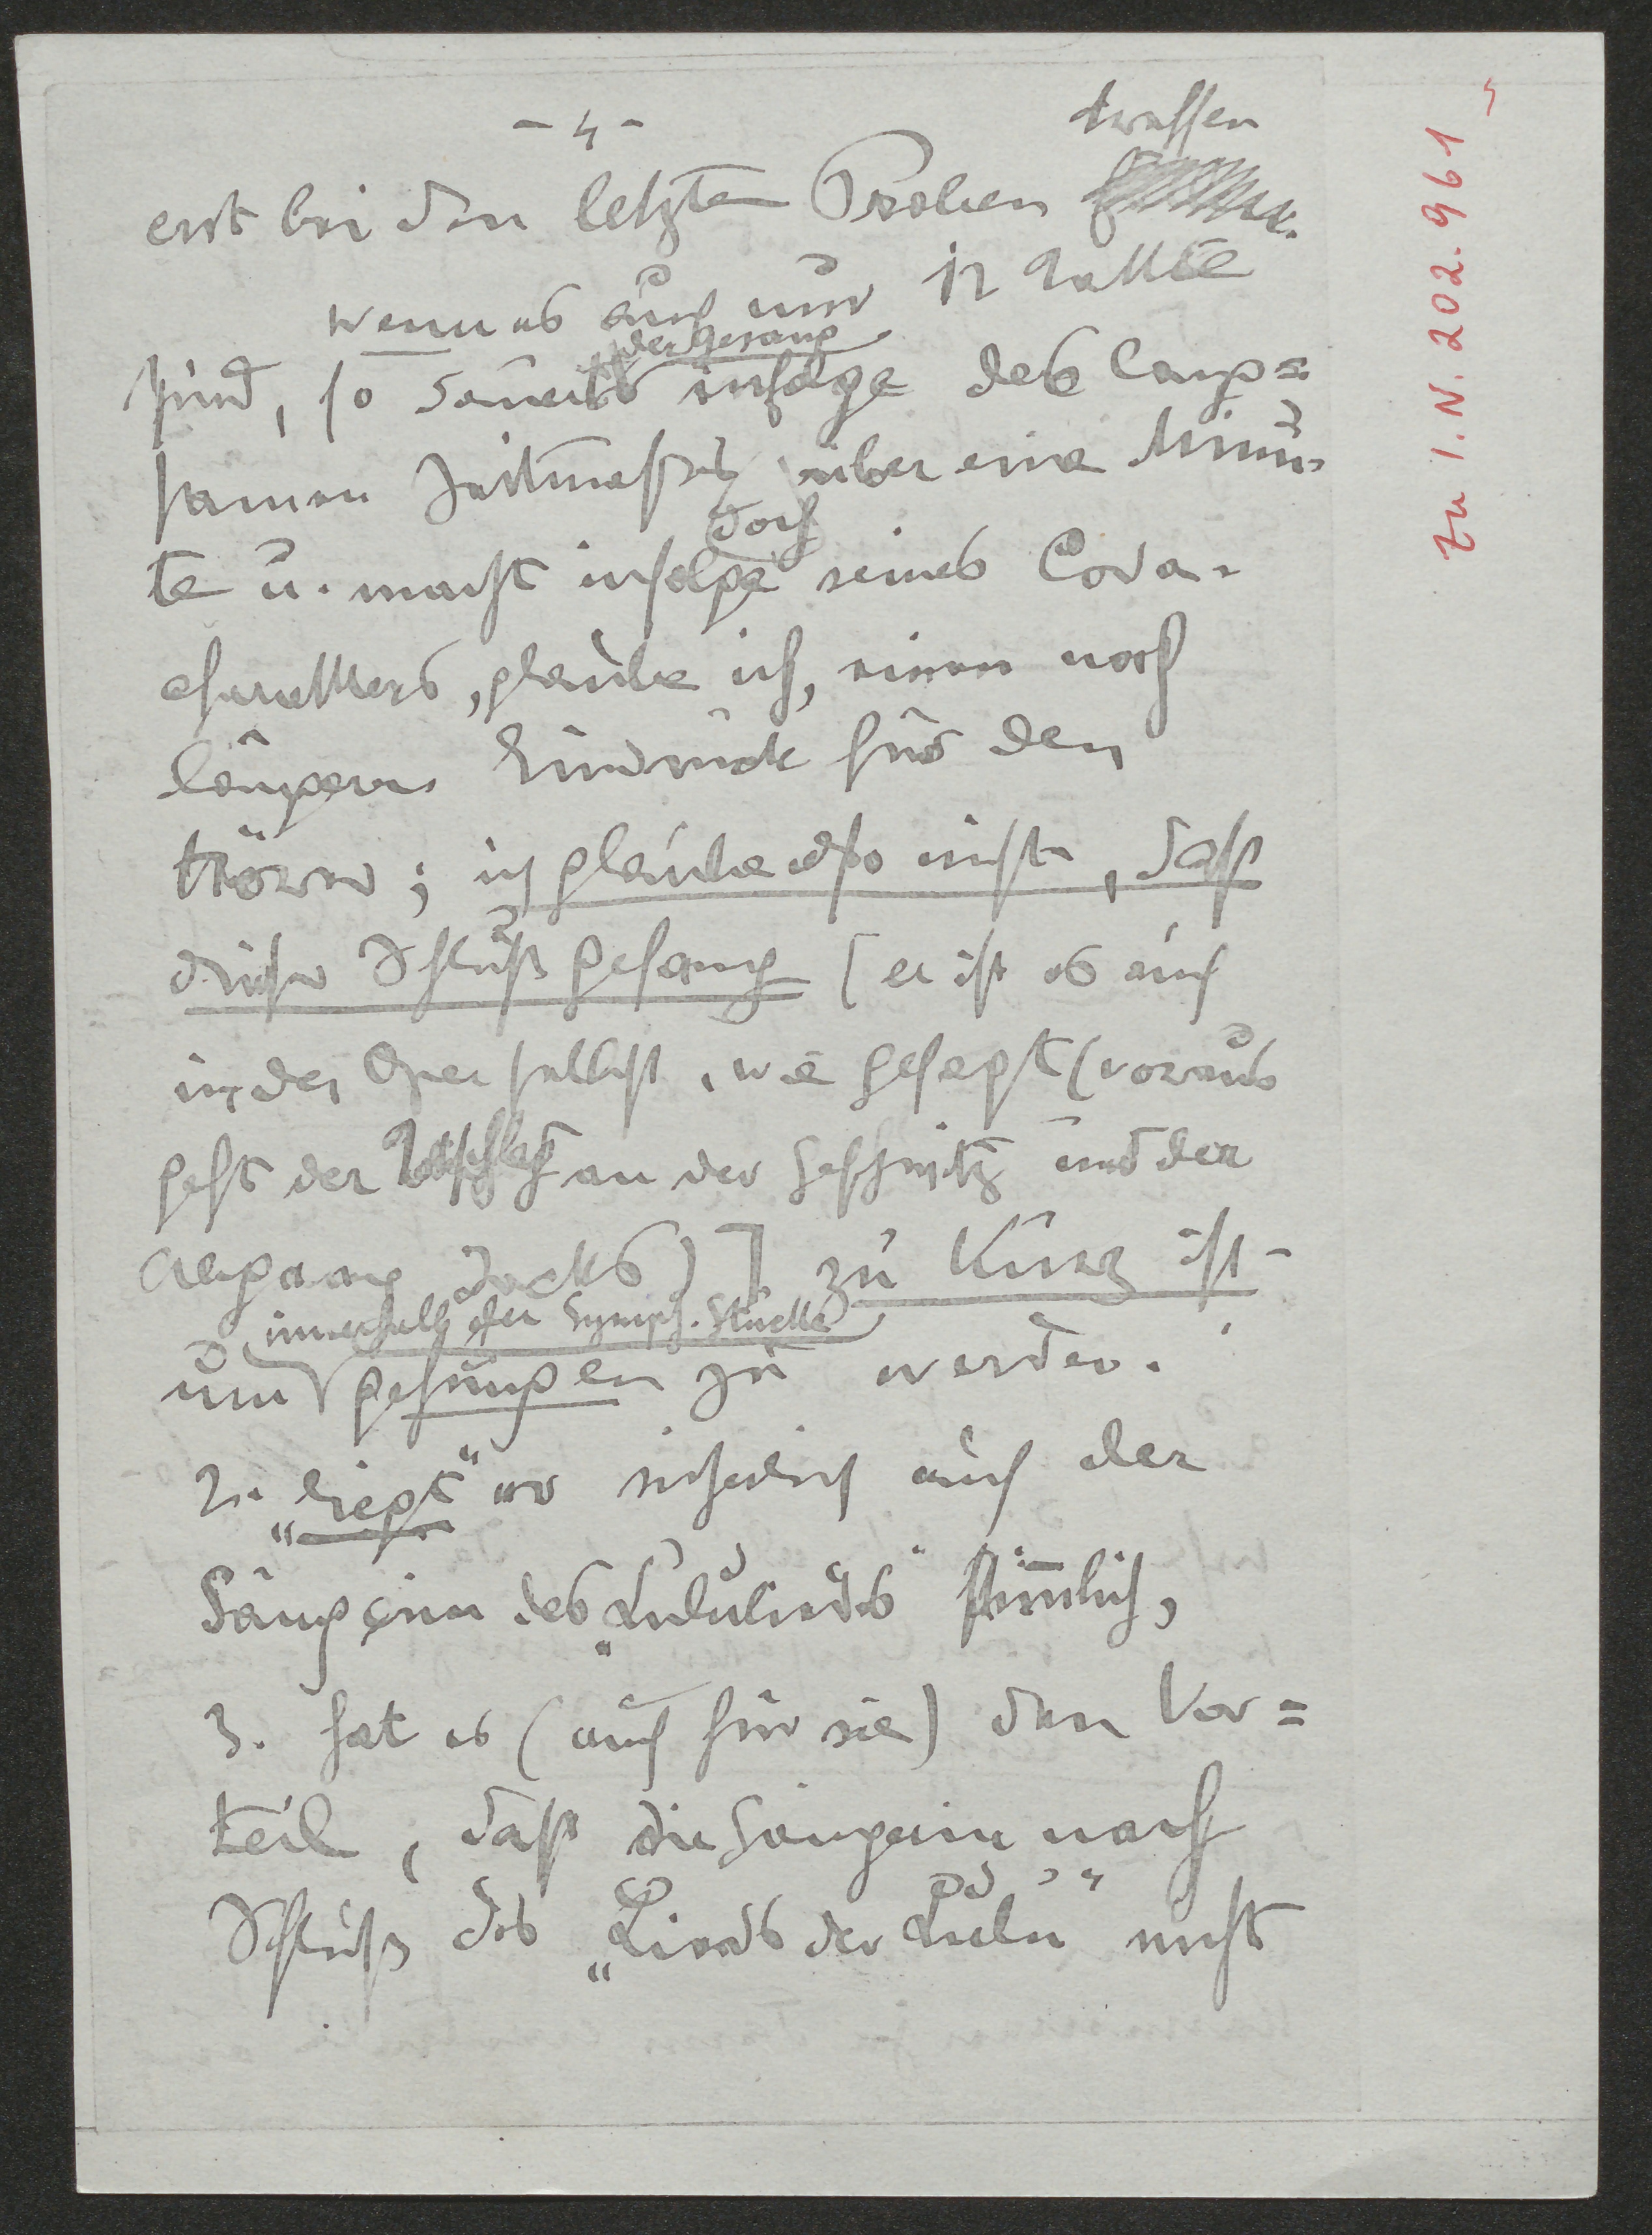 - 4 -
treffen
erst bei den letzten Proben
wenn es auch nur 12 Takte
sind, so dauert der Gesang infolge des lang=
samen Zeitmaßes doch über eine Minu-
te u. macht infolge seines Coda-
charakters, glaube ich, einen noch
längern Eindruck für den
Hörer; ich glaube also nicht, daß
dieser Schlußgesang [er ist es auch
in der Oper selbst, wie gesagt (voraus
geht der Totschlag an der Geschwitz und der
Abgang Jacks)] zu kurz ist
um innerhalb der Symph. Stücke
gesungen zu werden.
2. „liegt" er sicherlich auch der
Sängerin des „Lululiedes" stimmlich,
3. hat es (auch für sie) den Vor=
teil, daß die Sängerin nach
Schluß des „Lieds der Lulu" nicht
Zu I.N. 202.961